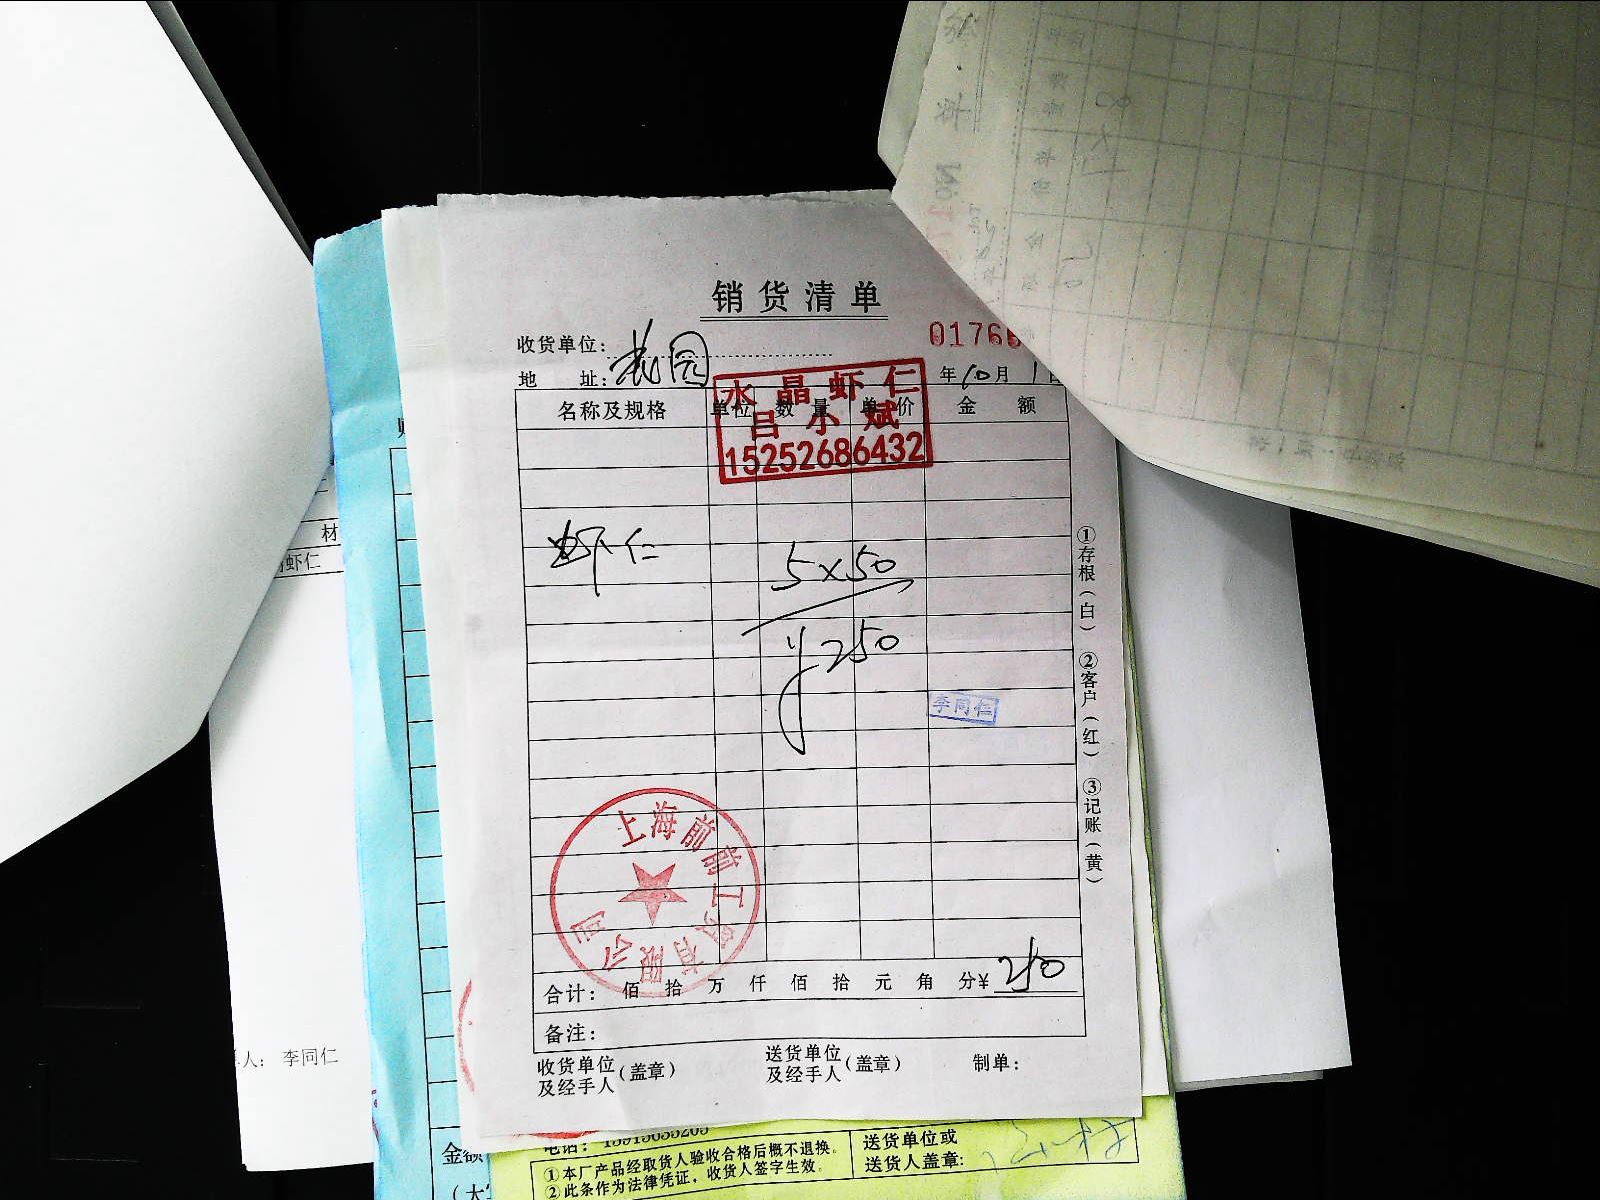 销货清单
收货单位：花园
01766
地 址：
年10月1日
水晶虾仁
吕小斌
15252686432
名称及规格 单位 数量 单价 金额
虾仁
5×50
¥250
李同仁
上海前前工贸有限公司
合计： 佰 拾 万 仟 佰 拾 元 角 分¥ 250
备注：
收货单位及经手人（盖章） 送货单位及经手人（盖章） 制单：
①存根（白） ②客户（红） ③记账（黄）
材
虾仁
人： 李同仁
金额
（大
电话：15915655205
①本厂产品经取货人验收合格后概不退换。
②此条作为法律凭证，收货人签字生效。
送货单位或
送货人盖章：